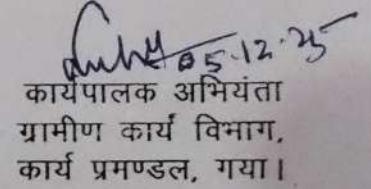 05.12.25
कार्यपालक अभियंता
ग्रामीण कार्य विभाग,
कार्य प्रमण्डल, गया।